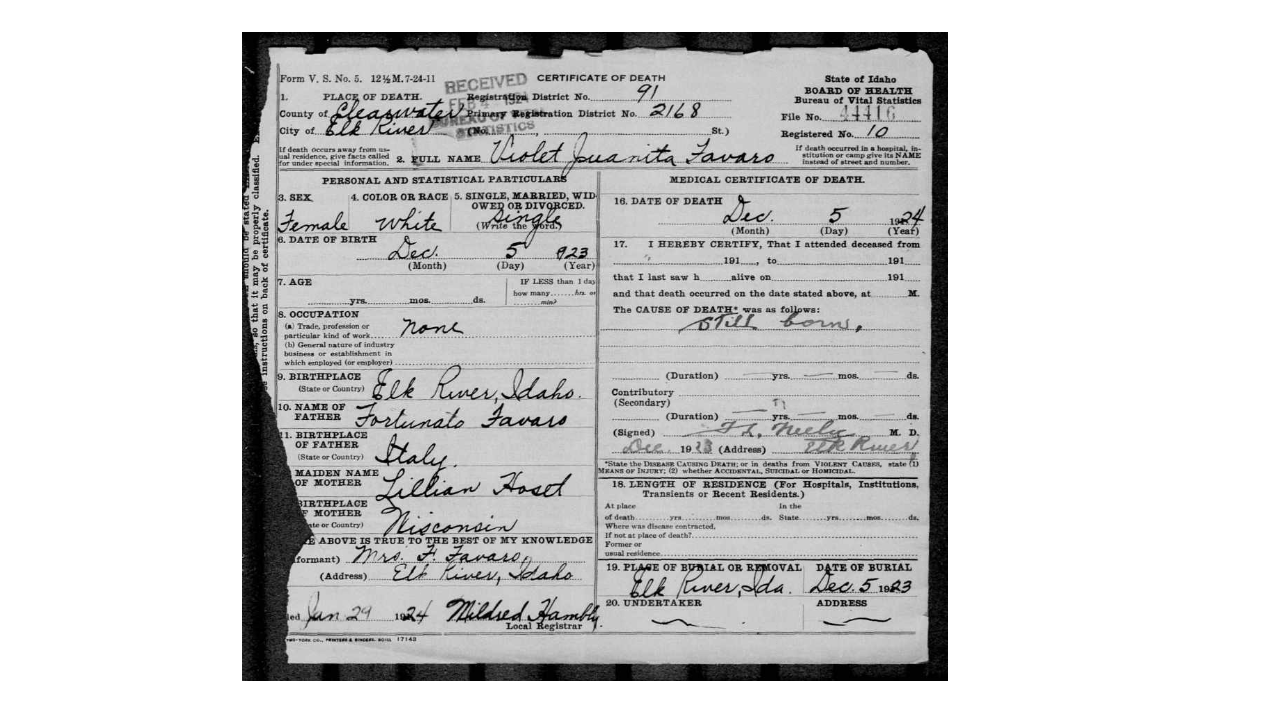 Form V. S. No. 5. 12½ M. 7-24-11
RECEIVED
FEB 4 1924
BUREAU OF
STATISTICS
CERTIFICATE OF DEATH
State of Idaho
BOARD OF HEALTH
Bureau of Vital Statistics
File No. 44416
Registered No. 10
1. PLACE OF DEATH.
Registration District No. 91
County of Clearwater Primary Registration District No. 2168
City of Elk River (No. , St.)
If death occurs away from us-
ual residence, give facts called
for under special information.
2. FULL NAME Violet Juanita Favaro
If death occurred in a hospital, in-
stitution or camp give its NAME
instead of street and number.
PERSONAL AND STATISTICAL PARTICULARS
3. SEX 4. COLOR OR RACE 5. SINGLE, MARRIED, WID-
OWED OR DIVORCED.
Female White Single
(Write the word.)
6. DATE OF BIRTH
Dec. 5 923
(Month) (Day) (Year)
7. AGE IF LESS than 1 day
how many hrs. or
yrs. mos. ds. min?
8. OCCUPATION
(a) Trade, profession or
particular kind of work none
(b) General nature of industry
business or establishment in
which employed (or employer)
9. BIRTHPLACE
(State or Country) Elk River, Idaho.
10. NAME OF
FATHER Fortunato Favaro
11. BIRTHPLACE
OF FATHER
(State or Country) Italy.
MAIDEN NAME
OF MOTHER Lillian Hoset
BIRTHPLACE
OF MOTHER
(State or Country) Wisconsin
ABOVE IS TRUE TO THE BEST OF MY KNOWLEDGE
formant) Mrs. F. Favaro,
(Address) Elk River, Idaho
Jan 29 1924 Mildred Hambly
Local Registrar
17142
MEDICAL CERTIFICATE OF DEATH.
16. DATE OF DEATH
Dec. 5 1924
(Month) (Day) (Year)
17. I HEREBY CERTIFY, That I attended deceased from
191 , to 191
that I last saw h alive on 191
and that death occurred on the date stated above, at M.
The CAUSE OF DEATH* was as follows:
Still born,
(Duration) yrs. mos. ds.
Contributory
(Secondary)
(Duration) yrs. mos. ds.
(Signed) M. D.
Dec. 1923 (Address) Elk River
*State the DISEASE CAUSING DEATH; or in deaths from VIOLENT CAUSES, state (1)
MEANS OF INJURY; (2) whether ACCIDENTAL, SUICIDAL or HOMICIDAL.
18. LENGTH OF RESIDENCE (For Hospitals, Institutions,
Transients or Recent Residents.)
At place In the
of death yrs. mos. ds. State yrs. mos. ds.
Where was disease contracted,
If not at place of death?
Former or
usual residence
19. PLACE OF BURIAL OR REMOVAL DATE OF BURIAL
Elk River, Ida. Dec. 5 1923
20. UNDERTAKER ADDRESS
so that it may be properly classified.
instructions on back of certificate.